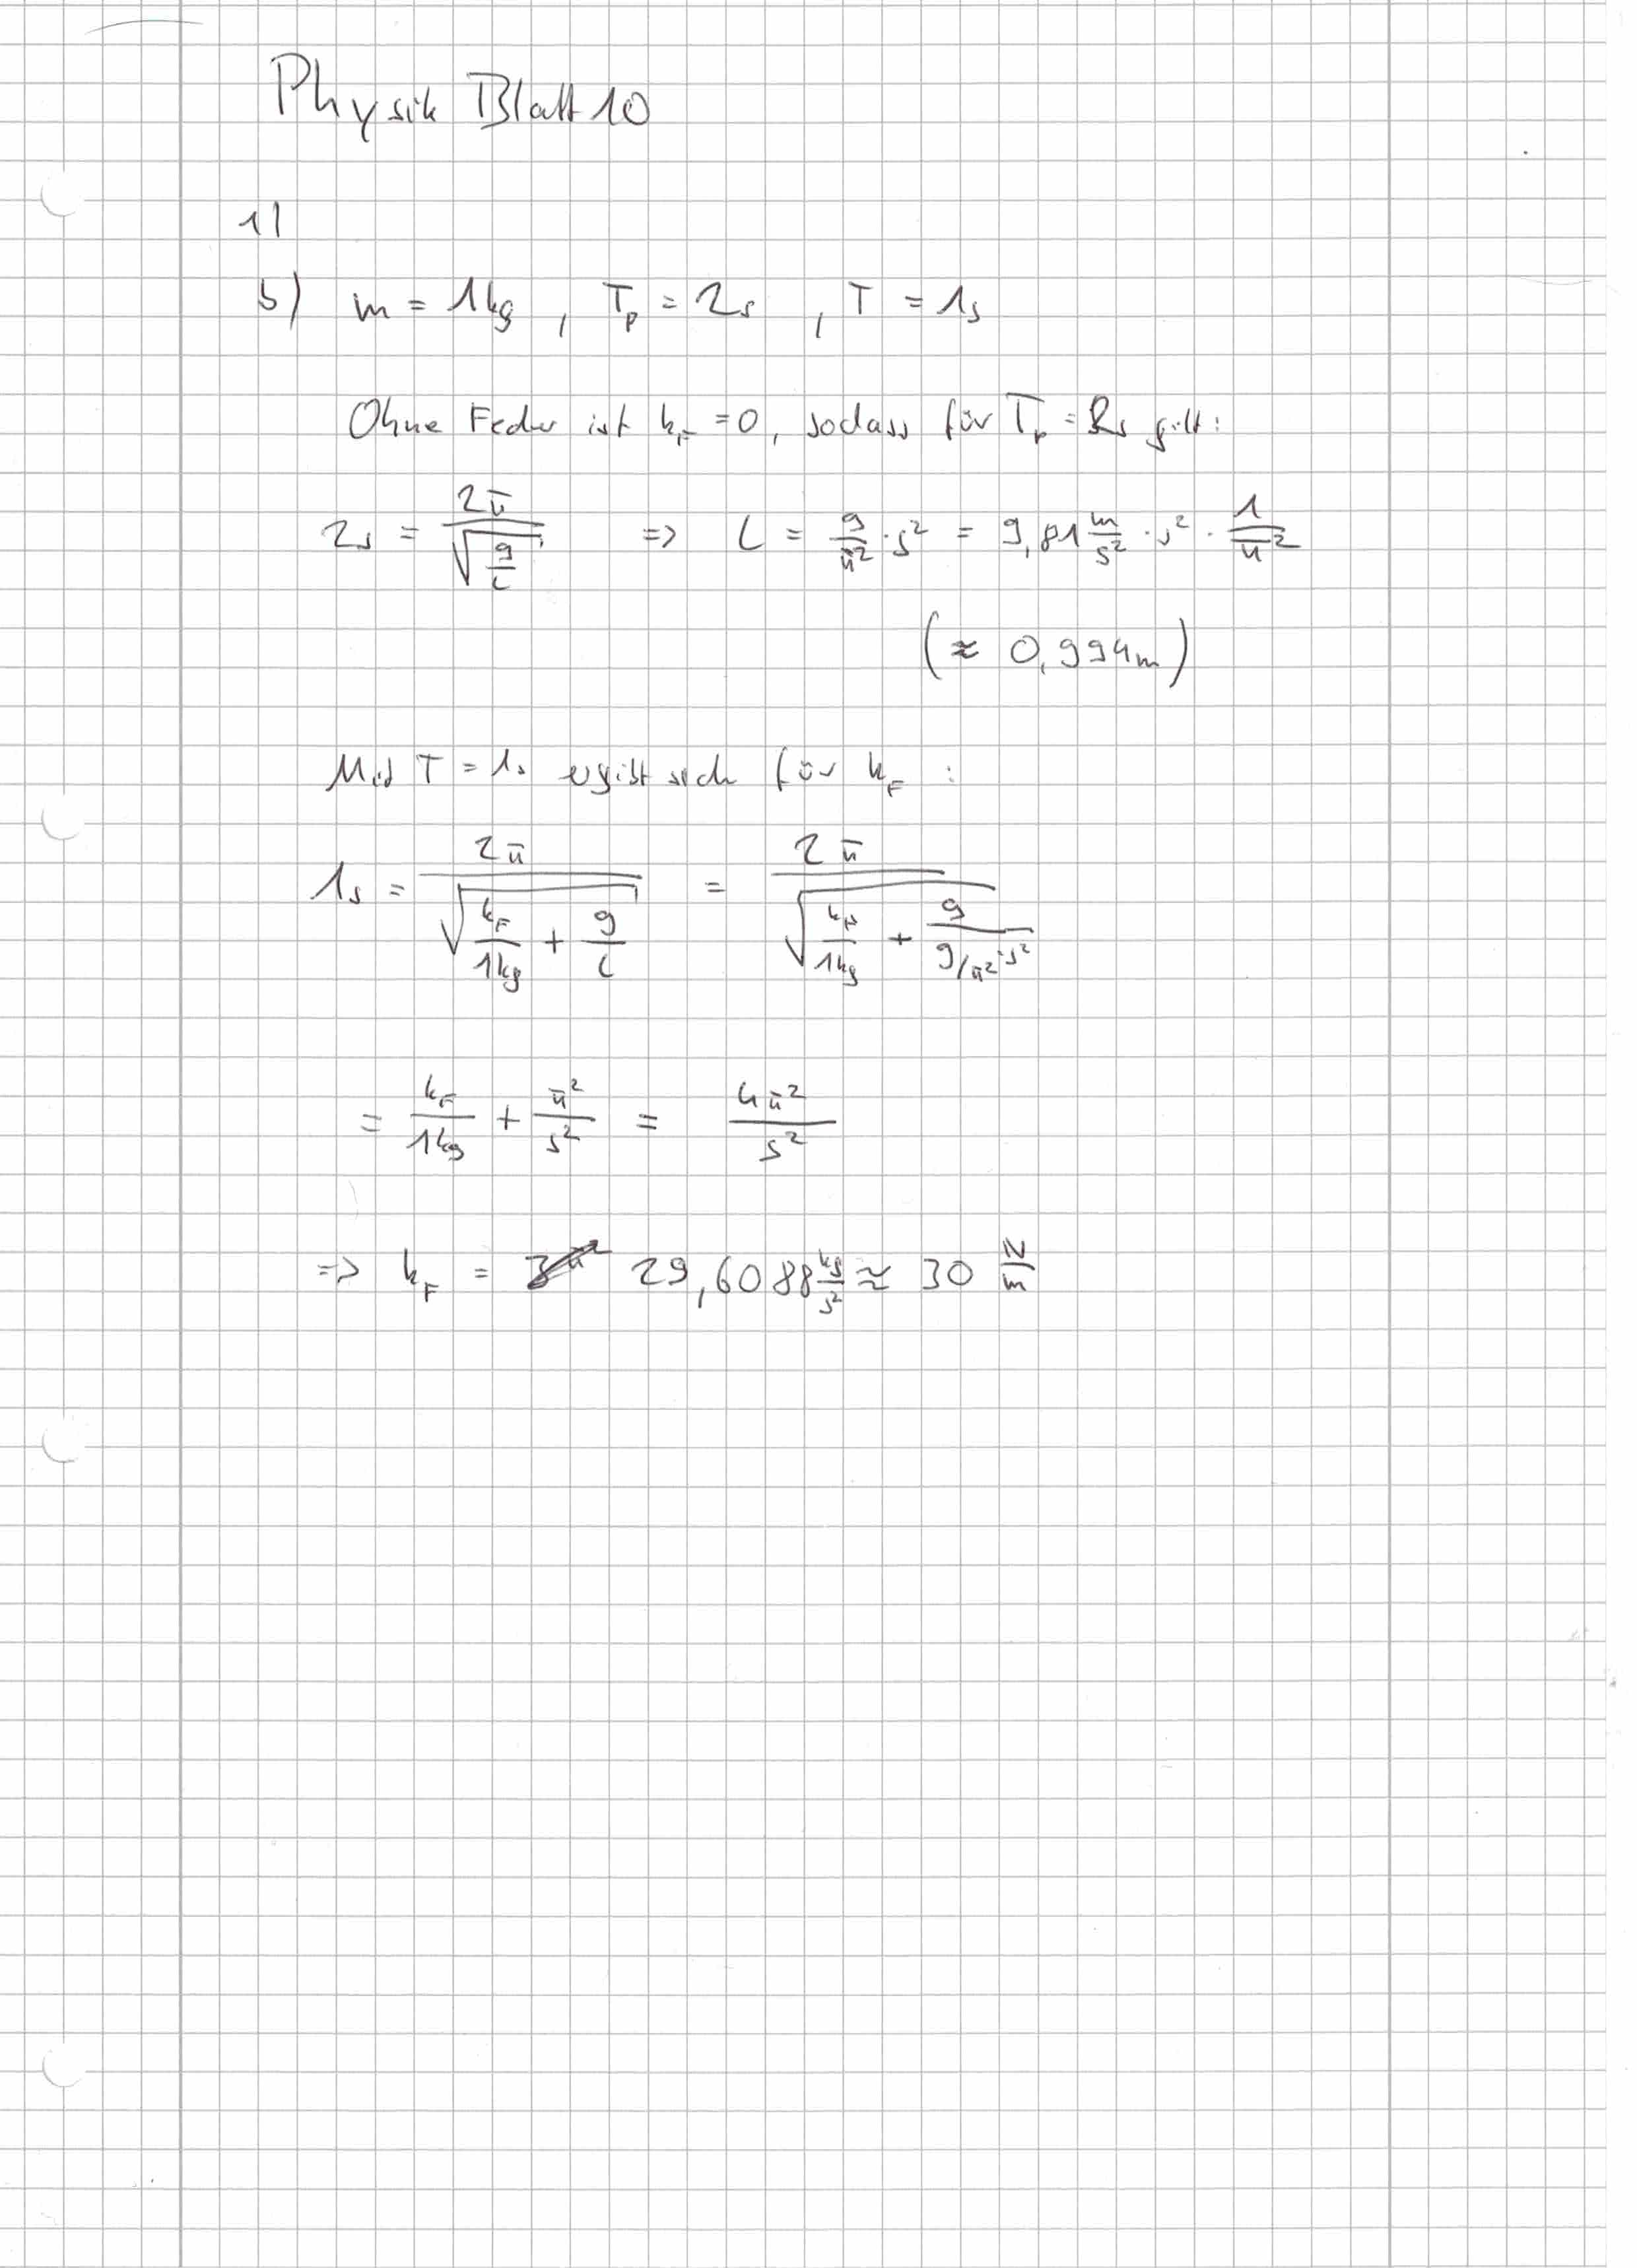 Physik Blatt 10
1)
b) m = 1kg , T_P = 2s , T = 1s
Ohne Feder ist k_F = 0, sodass für T_P = 2s gilt:
2s = 2π / √(g/L) => L = g/π² · s² = 9,81 m/s² · s² · 1/π²
(≈ 0,994m)
Mit T = 1s ergibt sich für k_F :
1s = 2π / √(k_F/1kg + g/L) = 2π / √(k_F/1kg + g/(g/π²·s²))
= k_F/1kg + π²/s² = 4π²/s²
=> k_F = 29,6088 kg/s² ≈ 30 N/m